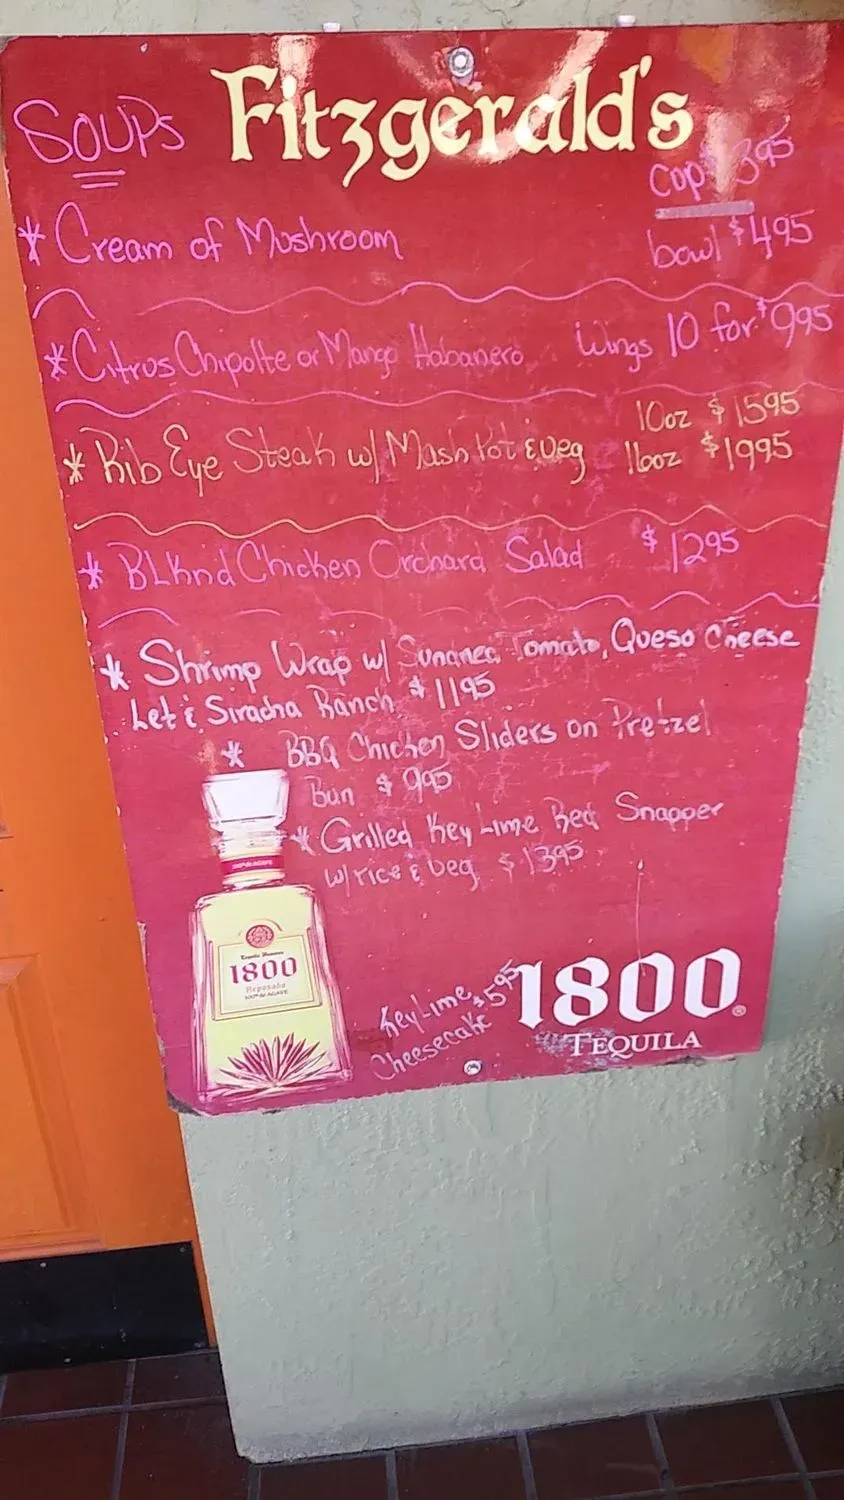 Fitzgerald's
SOUPS
cup $395
* Cream of Mushroom
bowl $495
* Citrus Chipolte or Mango Habanero Wings 10 for $995
* Rib Eye Steak w/ Mash Pot & veg 10oz $1595
16oz $1995
* BLKnd Chicken Orchard Salad $1295
* Shrimp Wrap w/ Tomato, Queso Cheese
Let & Siracha Ranch $1195
* BBQ Chicken Sliders on Pretzel
Bun $995
* Grilled Key Lime Red Snapper
w/ rice & veg $1395
Key Lime $595
Cheesecake
1800
TEQUILA
100% de AGAVE
1800
Reposado
100% de AGAVE